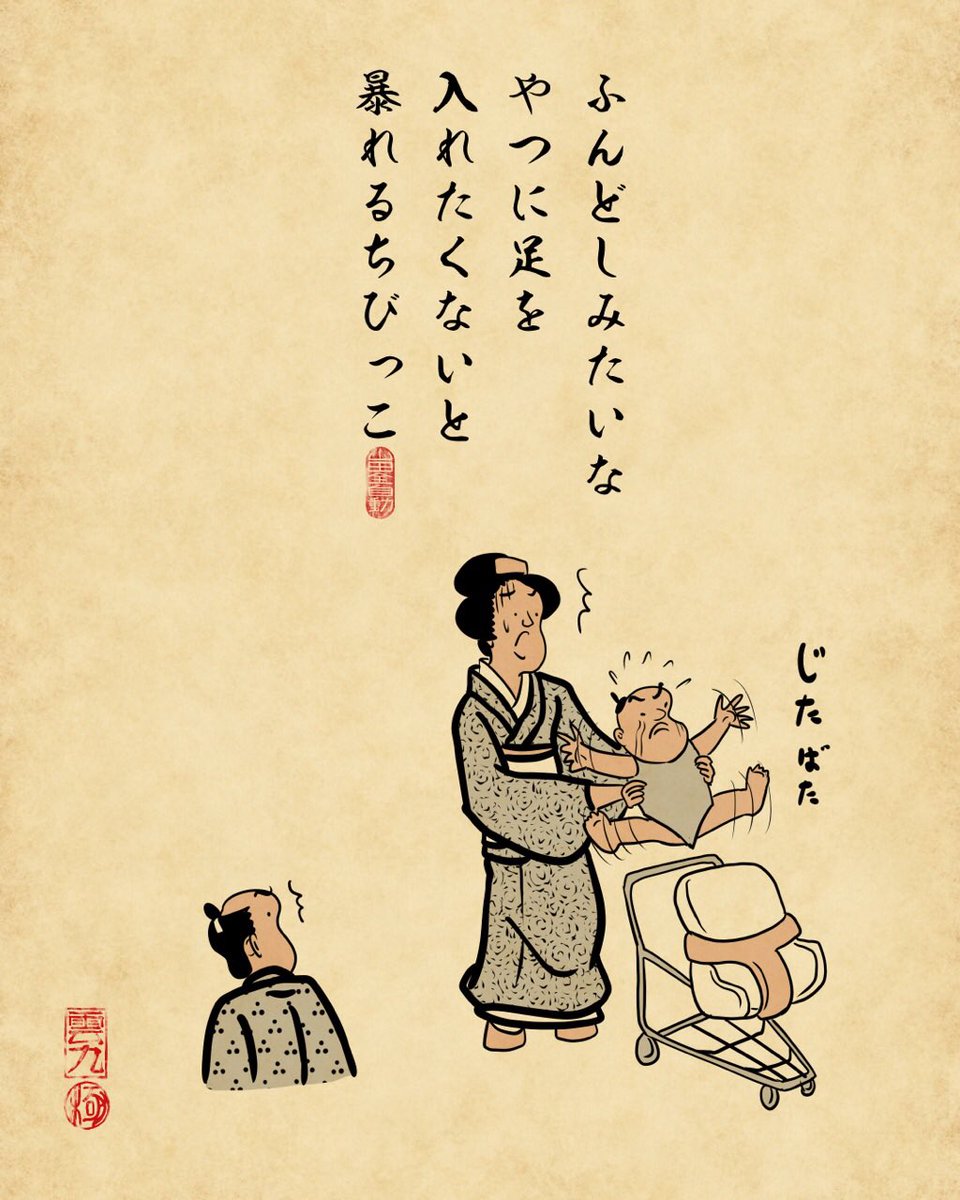 ふんどしみたいな
やつに足を
入れたくないと
暴れるちびっこ
じたばた